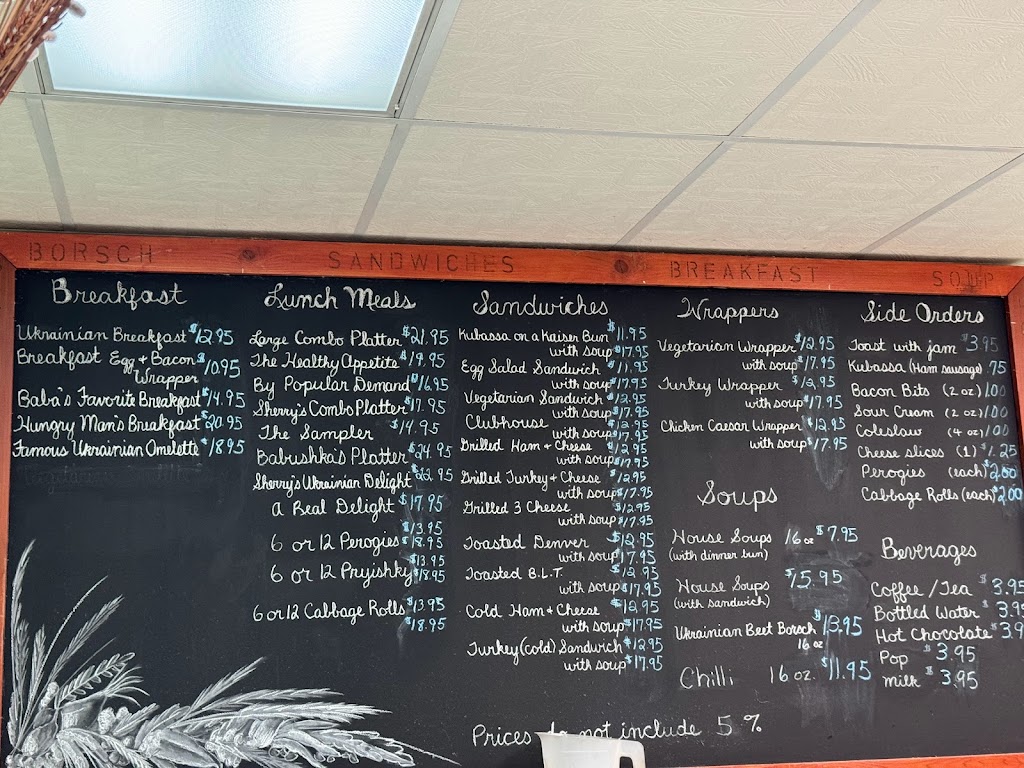 BORSCH SANDWICHES BREAKFAST SOUP
Breakfast
Ukrainian Breakfast $12.95
Breakfast Egg + Bacon $10.95
Wrapper
Baba's Favorite Breakfast $14.95
Hungry Man's Breakfast $20.95
Famous Ukrainian Omelette $18.95
Lunch Meals
Large Combo Platter $21.95
The Healthy Appetite $19.95
By Popular Demand $16.95
Sherry's Combo Platter $17.95
The Sampler $14.95
Babushka's Platter $24.95
Sherry's Ukrainian Delight $22.95
A Real Delight $17.95
6 or 12 Perogies $13.95
$18.95
6 or 12 Pryishky $13.95
$18.95
6 or 12 Cabbage Rolls $13.95
$18.95
Sandwiches
Kubassa on a Kaiser Bun $11.95
with soup $17.95
Egg Salad Sandwich $11.95
with soup $17.95
Vegetarian Sandwich $12.95
with soup $17.95
Clubhouse $12.95
with soup $17.95
Grilled Ham + Cheese $12.95
with soup $17.95
Grilled Turkey + Cheese $12.95
with soup $17.95
Grilled 3 Cheese $12.95
with soup $17.95
Toasted Denver $12.95
with soup $17.95
Toasted B.L.T. $12.95
with soup $17.95
Cold Ham + Cheese $12.95
with soup $17.95
Turkey (cold) Sandwich $12.95
with soup $17.95
Wrappers
Vegetarian Wrapper $12.95
with soup $17.95
Turkey Wrapper $12.95
with soup $17.95
Chicken Caesar Wrapper $12.95
with soup $17.95
Soups
House Soups 16 oz $7.95
(with dinner bun)
House Soups $5.95
(with sandwich)
Ukrainian Beet Borsch $13.95
16 oz
Chilli 16 oz. $11.95
Side Orders
Toast with jam $3.95
Kubassa (Ham sausage) .75
Bacon Bits (2 oz) 1.00
Sour Cream (2 oz) 1.00
Coleslaw (4 oz) 1.00
Cheese slices (1) $1.25
Perogies (each) $2.00
Cabbage Rolls (each) $2.00
Beverages
Coffee / Tea $3.95
Bottled Water $3.9
Hot Chocolate $3.9
Pop $3.95
Milk $3.95
Prices do not include 5 %